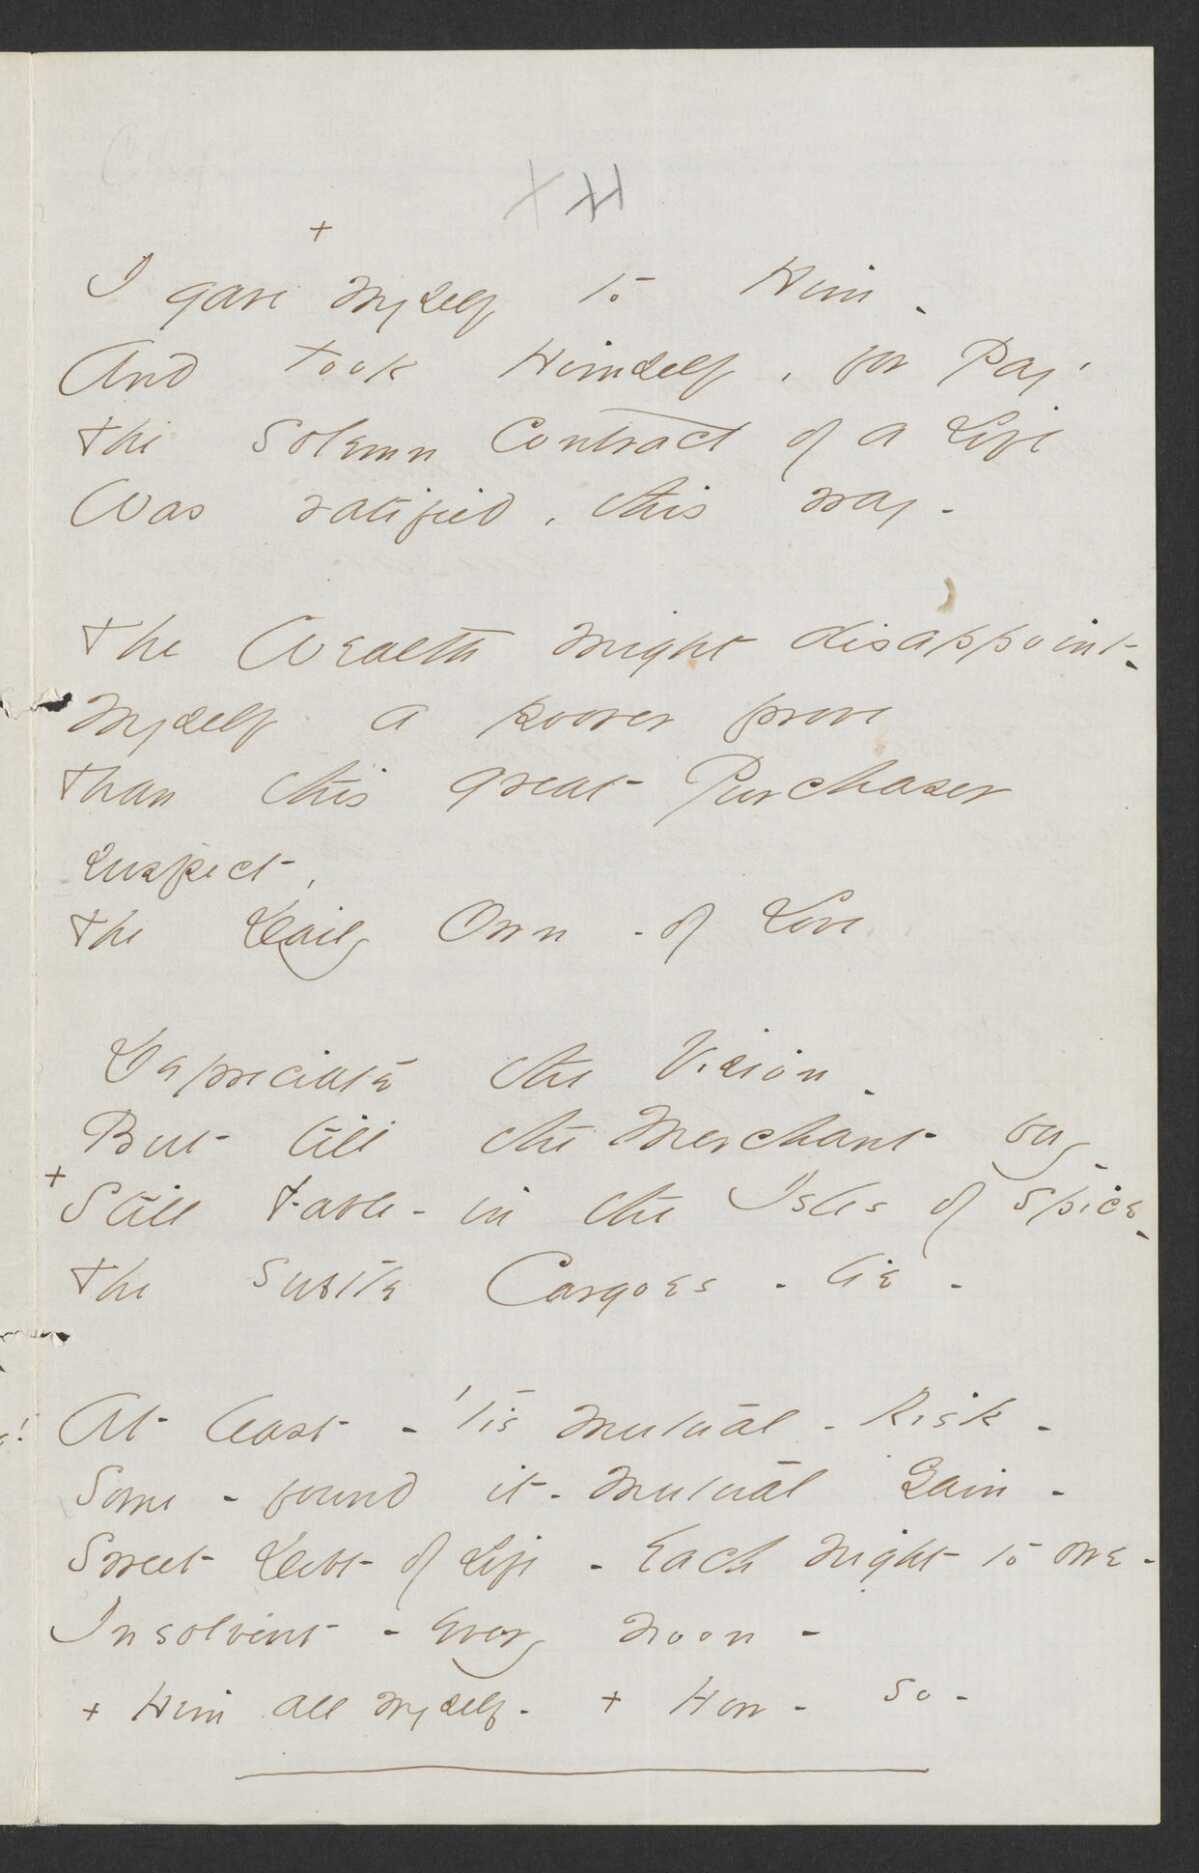 +
I gave myself to Him -
And took Himself, for Pay,
The Solemn Contract of a Life
Was ratified, this way -
The Wealth might disappoint -
Myself a poorer prove
Than this great Purchaser
suspect,
The Daily Own - of Love
Depreciate the Vision -
But till the Merchant buy -
+ Still Fable - in the Isles of Spice -
The subtle Cargoes - lie -
At least - 'tis mutual - Risk -
Some - found it - mutual Gain -
Sweet Debt of Life - Each Night to owe -
Insolvent - every Noon -
+ Him all myself - + How - so -